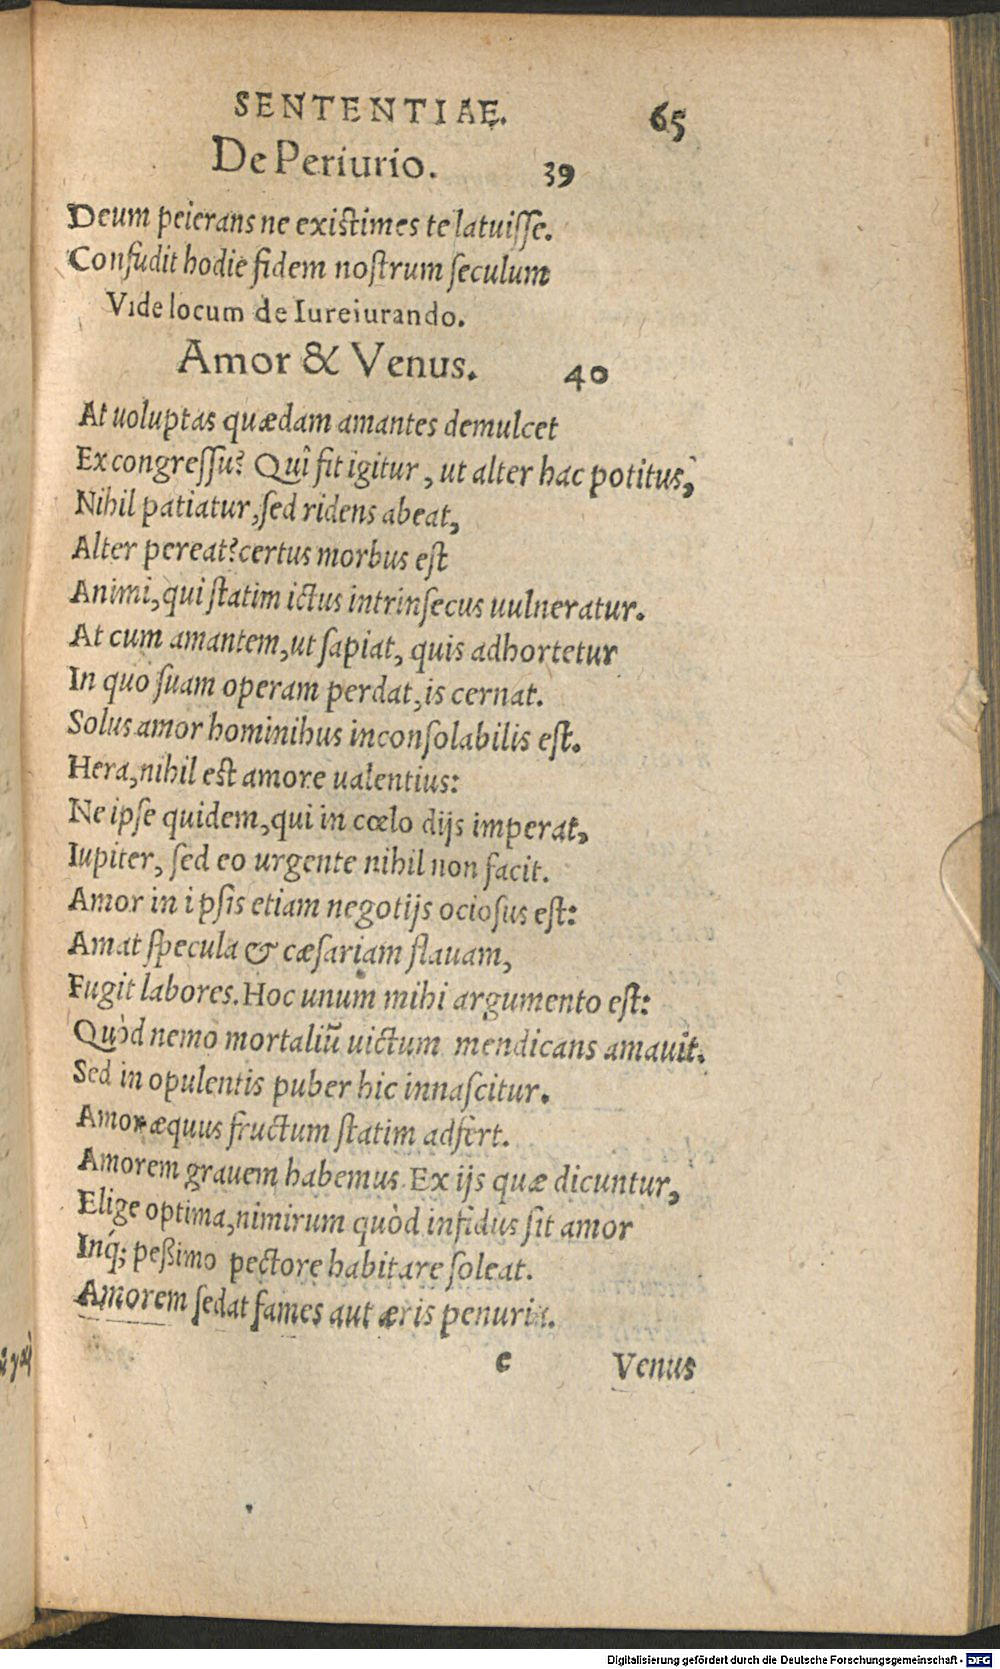 SENTENTIAE. 65
De Periurio. 39
Deum peierans ne existimes te latuisse.
Confudit hodie fidem nostrum seculum
Vide locum de Iureiurando.
Amor & Venus. 40
At uoluptas quædam amantes demulcet
Ex congressu? Quî fit igitur, ut alter hac potitus,
Nihil patiatur, sed ridens abeat,
Alter pereat? certus morbus est
Animi, qui statim ictus intrinsecus uulneratur.
At cum amantem, ut sapiat, quis adhortetur
In quo suam operam perdat, is cernat.
Solus amor hominibus inconsolabilis est.
Hera, nihil est amore ualentius:
Ne ipse quidem, qui in cœlo dijs imperat,
Iupiter, sed eo urgente nihil non facit.
Amor in ipsis etiam negotijs ociosus est:
Amat specula & cæsariam flauam,
Fugit labores. Hoc unum mihi argumento est:
Quòd nemo mortaliū uictum mendicans amauit.
Sed in opulentis puber hic innascitur.
Amor æquus fructum statim adfert.
Amorem grauem habemus. Ex ijs quæ dicuntur,
Elige optima, nimirum quòd infidus sit amor
Inq́; peßimo pectore habitare soleat.
Amorem sedat fames aut æris penuria.
c Venus
Digitalisierung gefördert durch die Deutsche Forschungsgemeinschaft - DFG